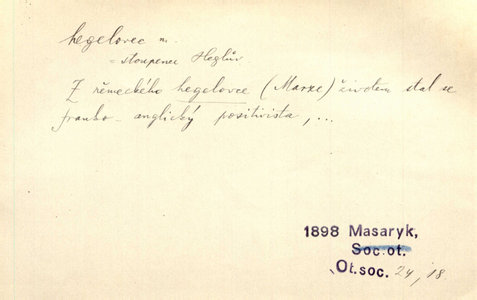 hegelovec m.
= stoupenec Heglův.
Z německého hegelovce (Marxe) životem stal se
franko-anglický positivista, ...
1898 Masaryk,
Soc. ot.
Ot. soc. 24, 18